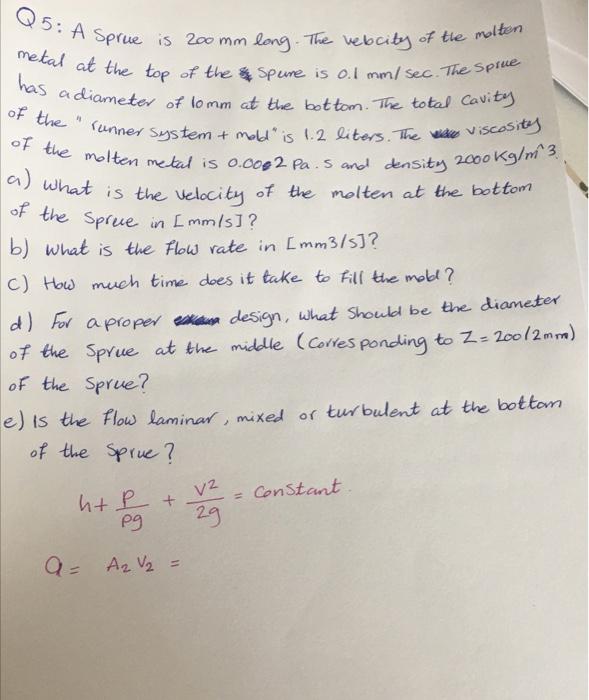 Q5: A Sprue is 200 mm long. The velocity of the molten
metal at the top of the spume is 0.1 mm/sec. The sprue
has a diameter of 10mm at the bottom. The total Cavity
of the "runner system + mold" is 1.2 liters. The viscosity
of the molten metal is 0.0002 Pa.s and density 2000 Kg/m^3.
a) what is the velocity of the molten at the bottom
of the Sprue in [mm/s]?
b) what is the flow rate in [mm3/s]?
c) How much time does it take to fill the mold?
d) For a proper design, what should be the diameter
of the Sprue at the middle (corresponding to Z=200/2mm)
of the Sprue?
e) Is the flow laminar, mixed or turbulent at the bottom
of the Sprue?
h + P/ρg + V²/2g = Constant.
Q = A₂ V₂ =